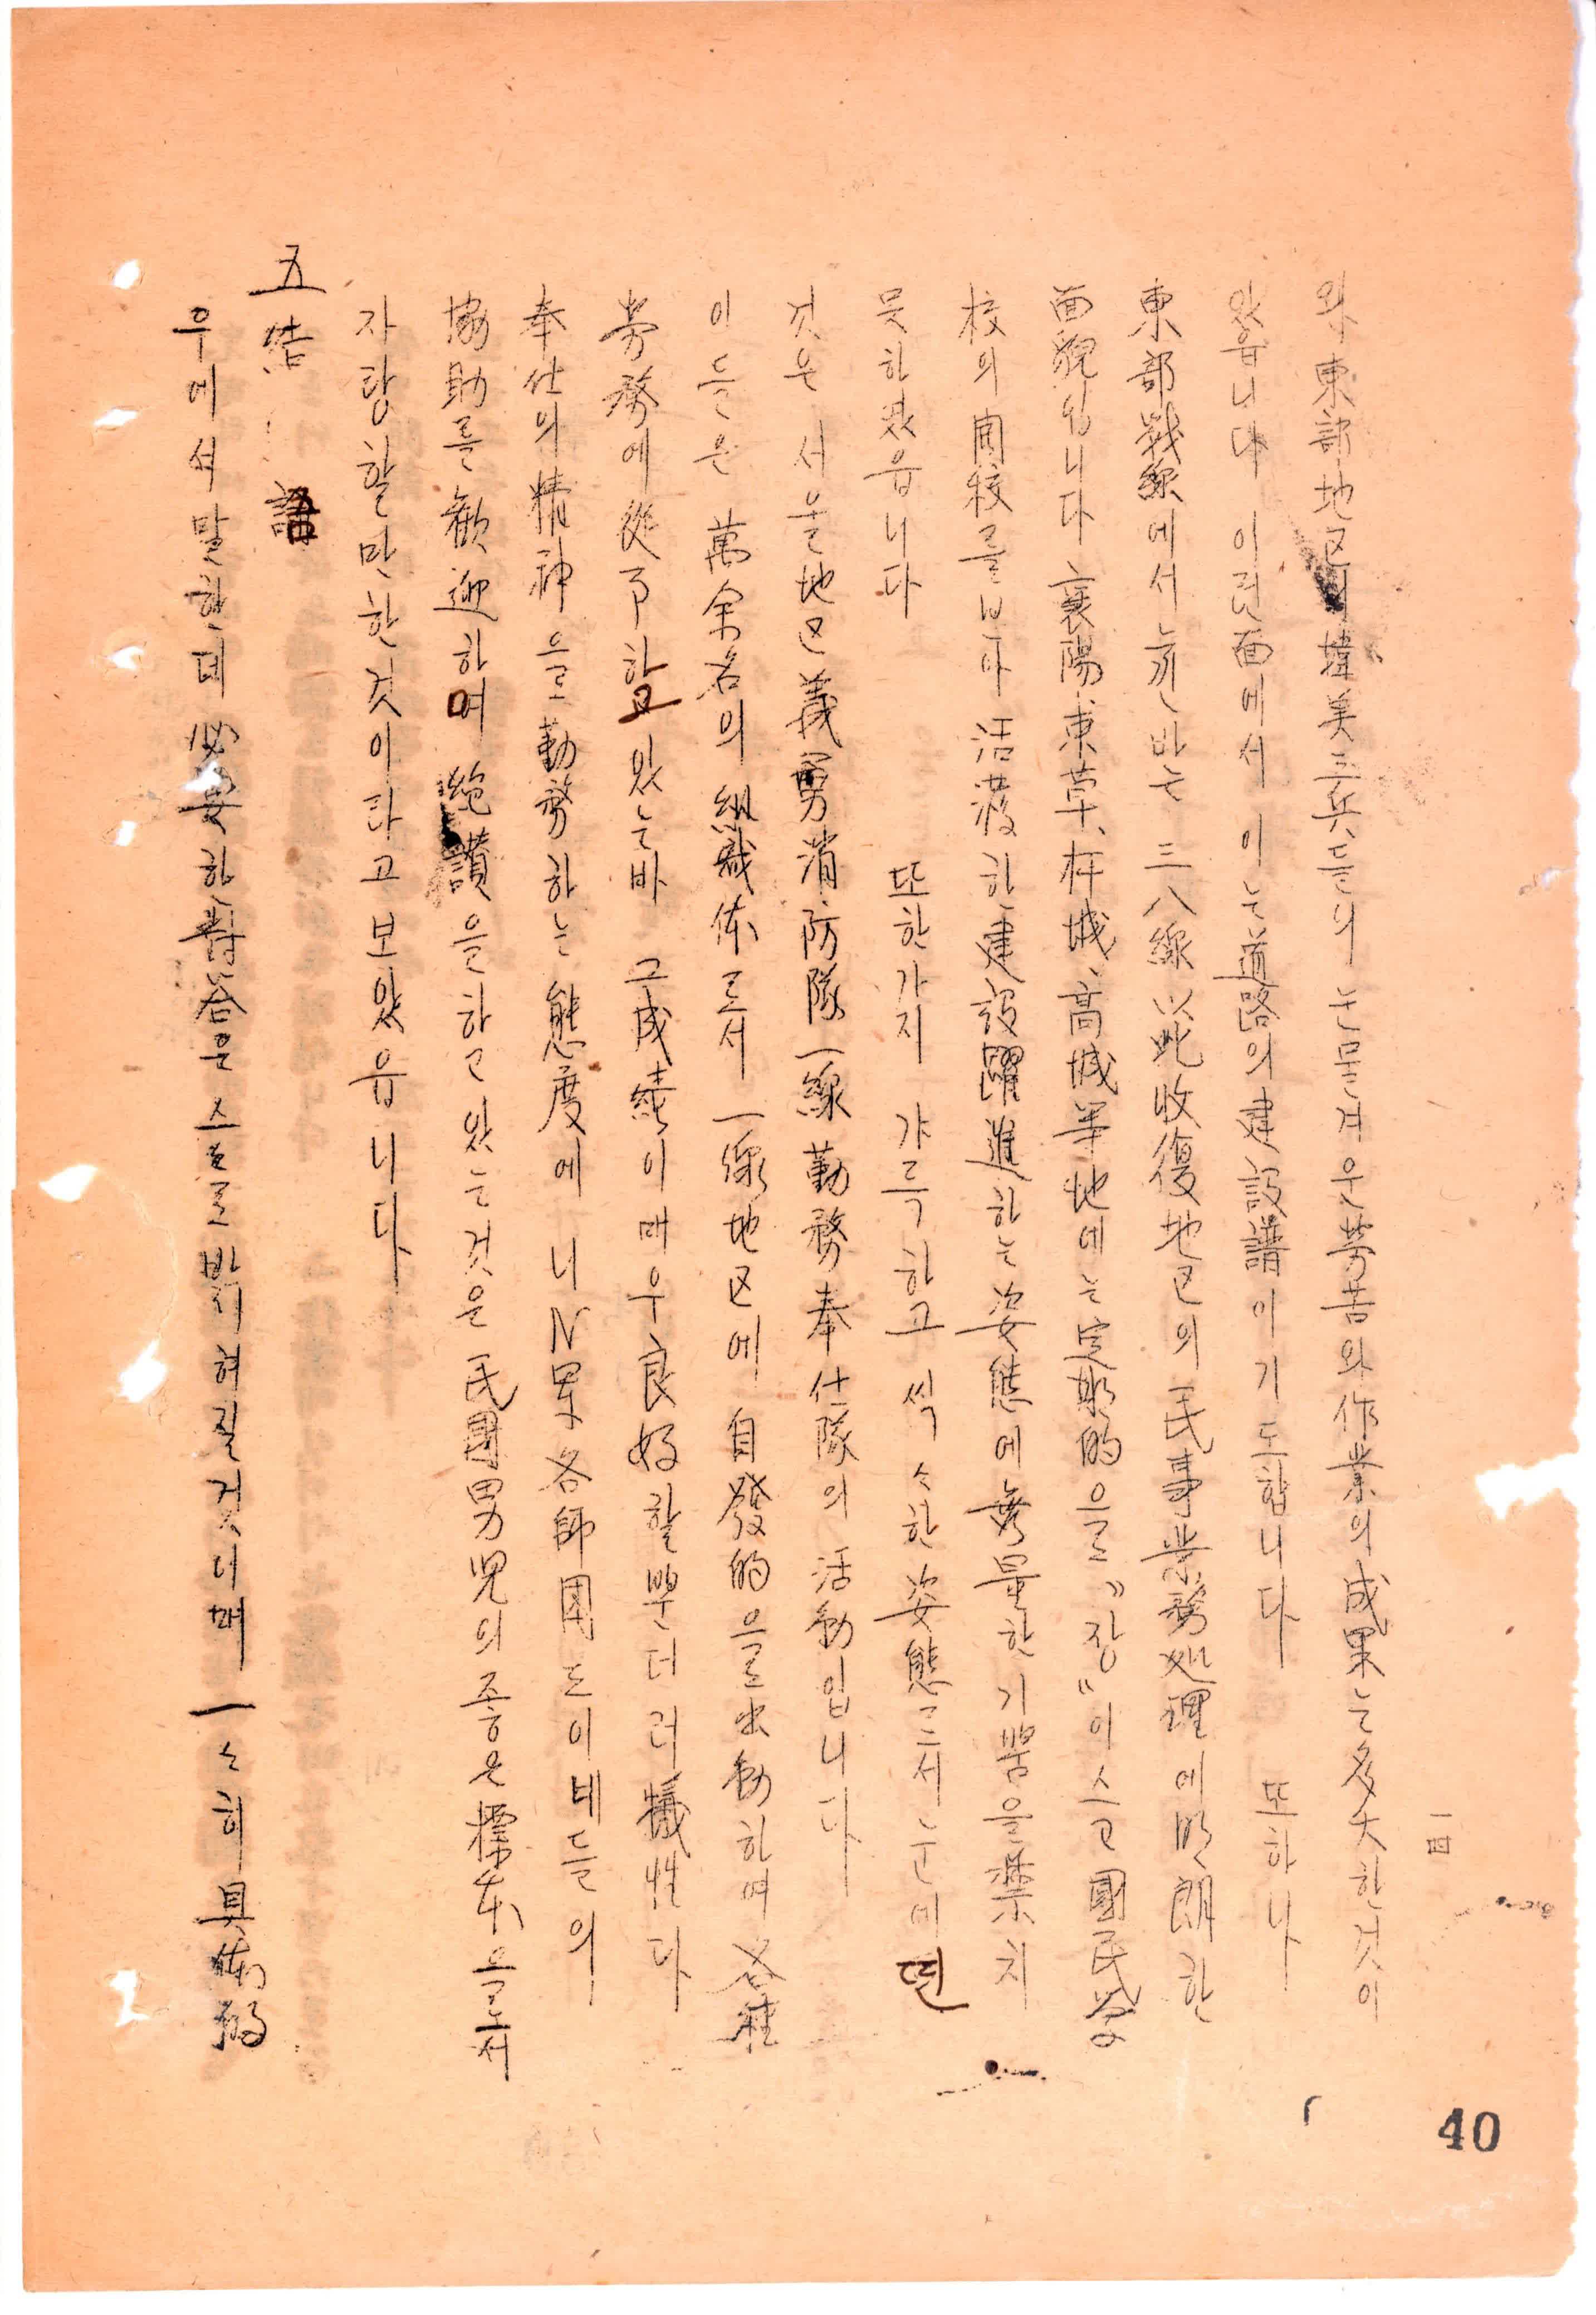 一四
와 東部地区의 韓美工兵들의 눈물겨운 勞苦와 作業의 成果는 多大한 것이
있읍니다 이런 面에서 이는 道路의 建設譜이기도 합니다 또 하나
東部戰線에서 눈 만는 三八線以北收復地区의 民事業務処理에 明朗한
面貌입니다 襄陽、束草、杆城、高城等地에는 定期的으로 "장"이 스고 國民學
校의 開校를 보아 活潑한 建設躍進하는 姿態에 無量한 기쁨을 禁치
못하였읍니다 또한가지 갸륵하고 씩々한 姿態로서 눈에 띈
것은 서울地区 義勇消防隊 一線勤務奉仕隊의 活動입니다
이들은 萬余名의 組織体로서 一線地区에 自發的으로 出動하며 各種
勞務에 從事하고 있는바 그 成績이 매우 良好할뿐더러 犧牲다
奉仕의 精神으로 勤務하는 態度에 니 N軍各師団도 이네들의
協助를 歡迎하며 絶讚을 하고 있는 것은 民國男児의 좋은 標本으로서
자랑할만한 것이라고 보았읍니다
五 結 語
우에서 말한데 必要한 對答은 스스로 밝혀질 것이매 一々히 具体的
40